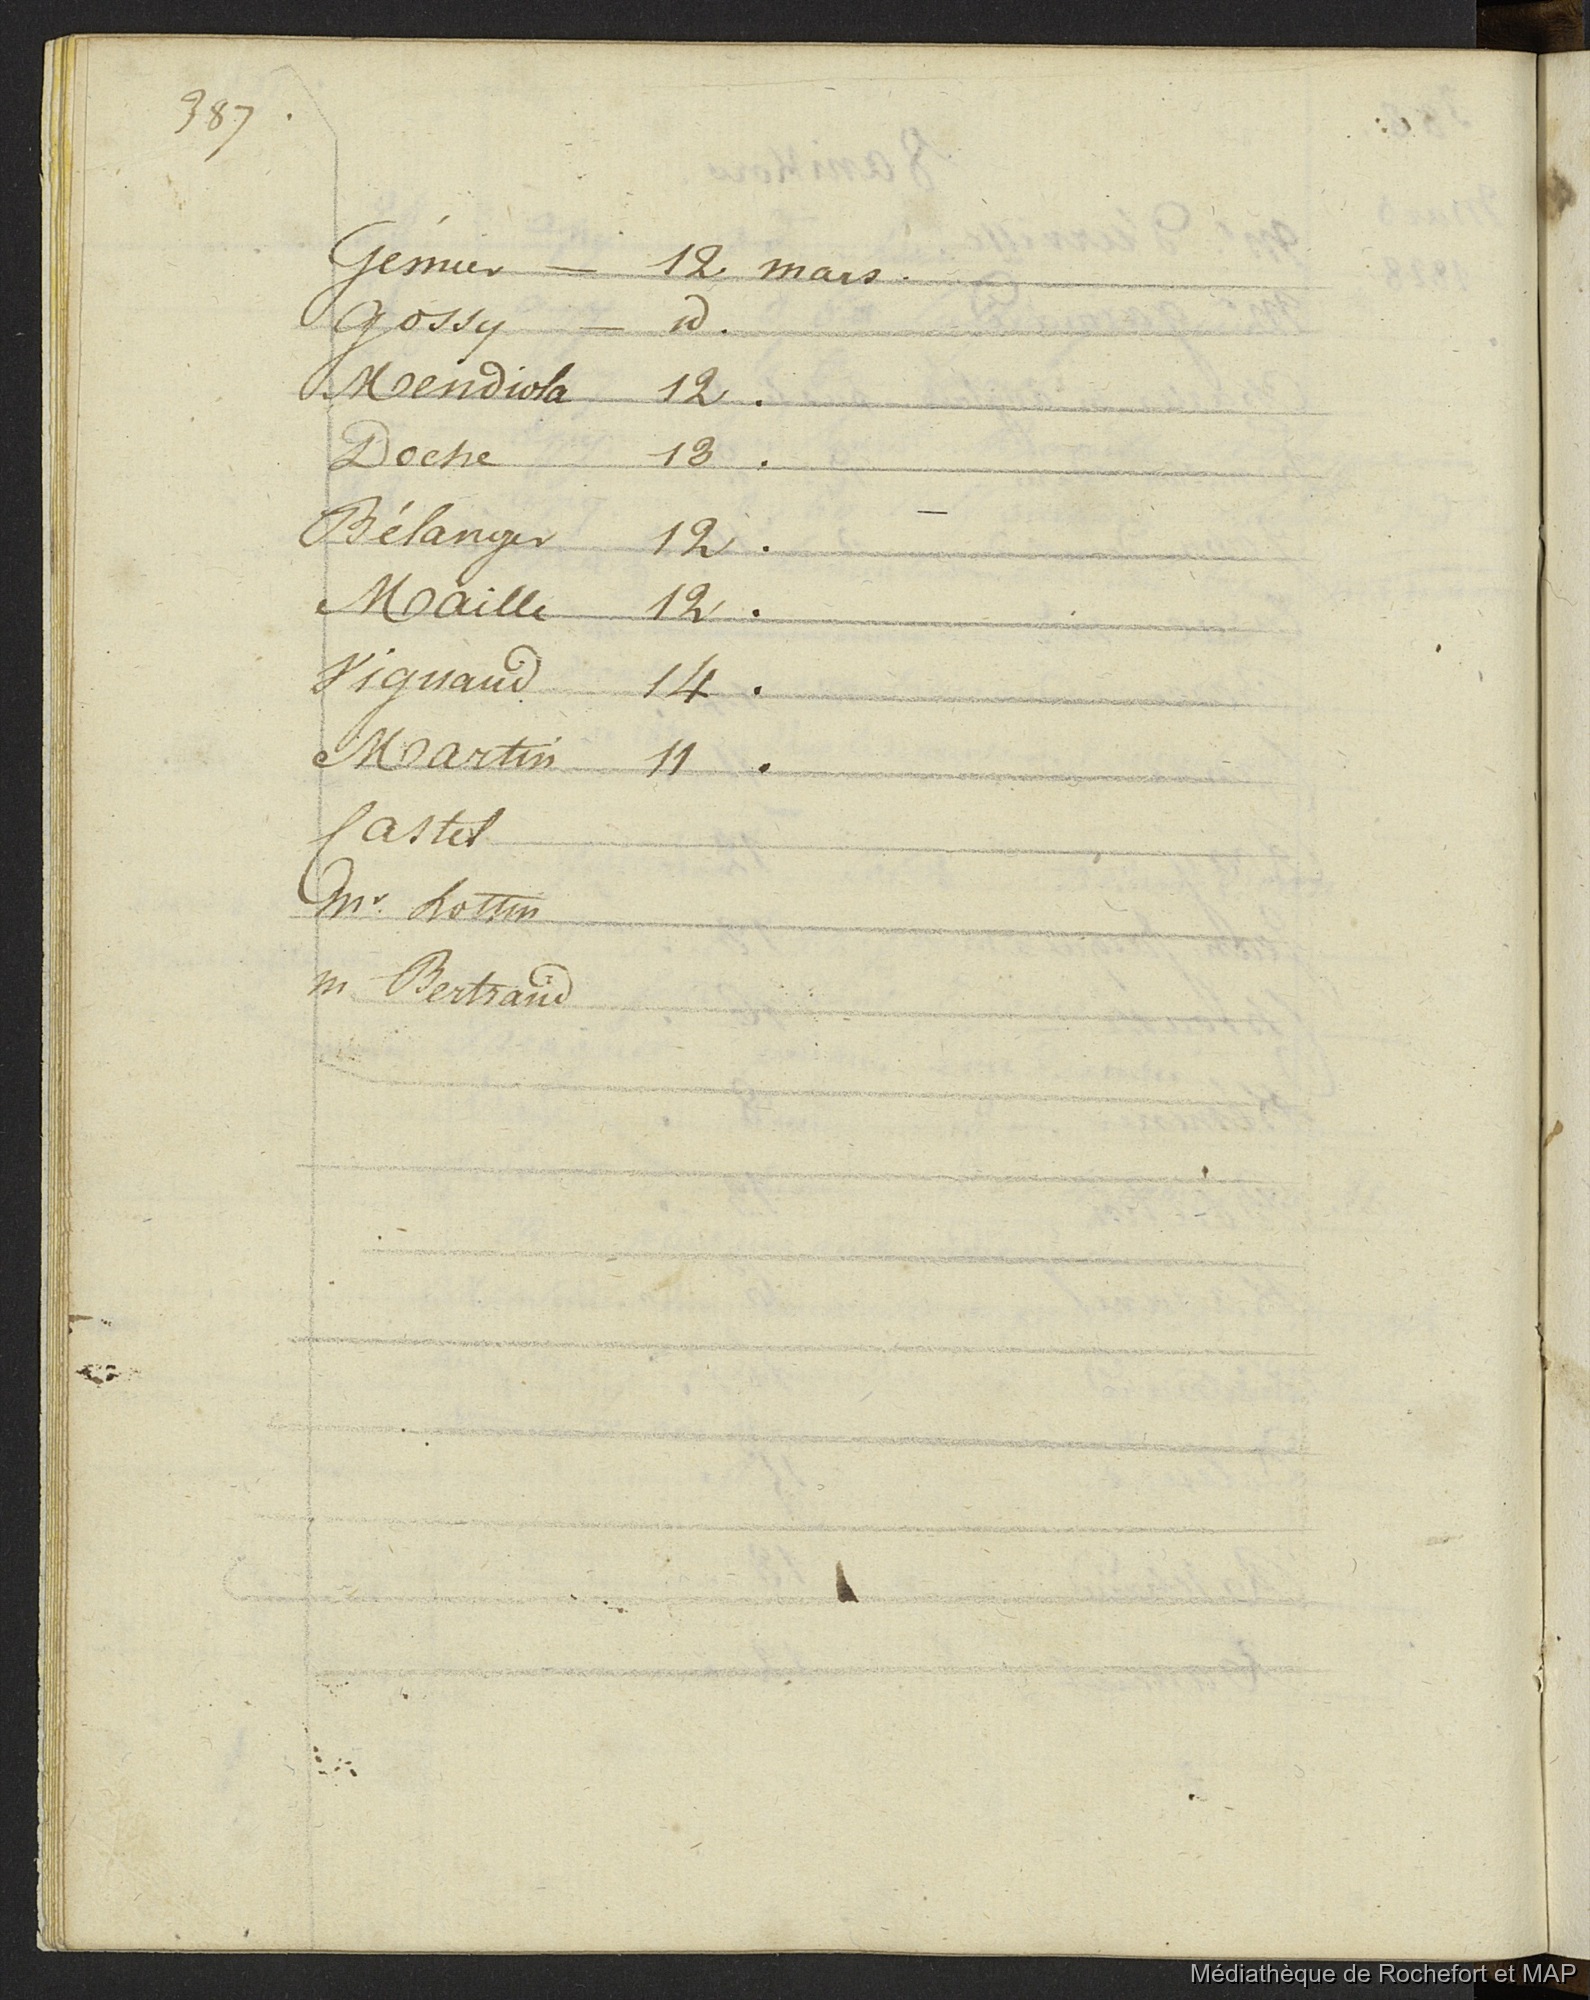 387.
Gémier — 12 mars.
Gossy — id.
Mendiola 12.
Doche 13.
Bélanger 12.
Maille 12.
Vignaud 14.
Martin 11.
Castel
Mr. Lottin
m Bertrand
Médiathèque de Rochefort et MAP